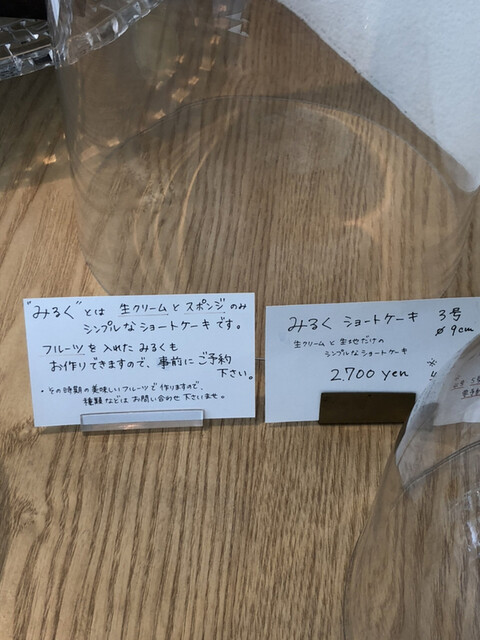 "みるく"とは 生クリームとスポンジのみ
シンプルなショートケーキです。
フルーツを入れたみるくも
お作りできますので、事前にご予約
下さい。
・その時期の美味しいフルーツで作りますので、
種類などはお問い合わせ下さいませ。
みるく ショートケーキ 3号
ø 9cm
生クリームと生地だけの
シンプルなショートケーキ
2.700 yen
※